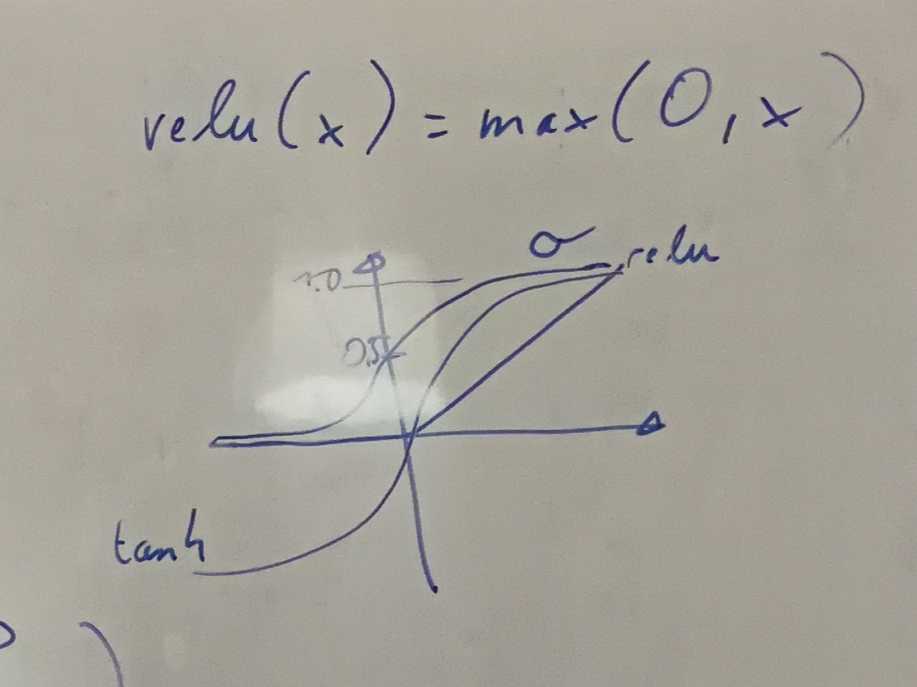 relu(x) = max(0, x)
σ
relu
1.0
0.5
tanh
)